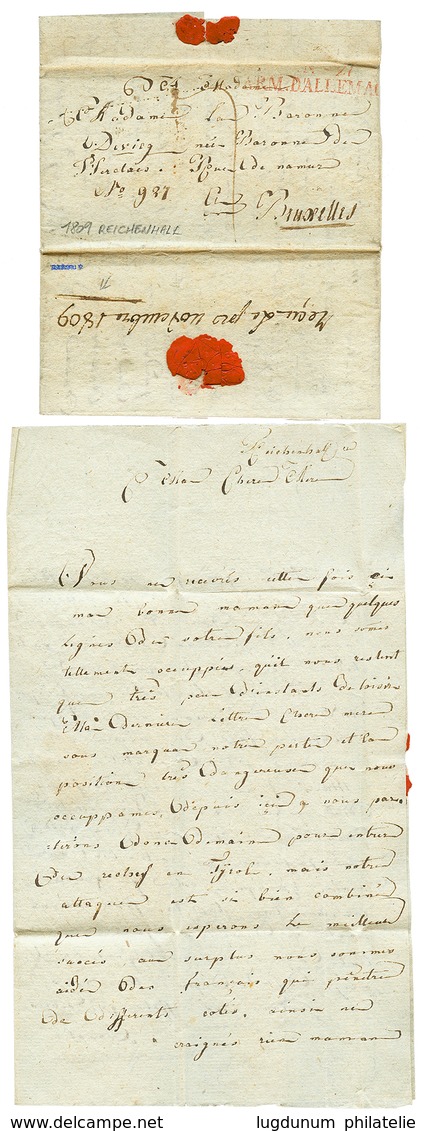 A Madame
ARM. D'ALLEMAG
Madame La Baronne
Devicq née Baronne de
T'Serclaes. Rue de namur
No 937
à Bruxelles
1809 REICHENHALL
Reçu le pro novembre 1809
Reichenhall le
Ma Chere Mere
Vous ne recevrés cette fois ci
ma bonne maman que quelques
Lignes de votre fils, nous somes
tellement occuppées, qu'il nous restent
que très peu d'instants de loisir
Ma derniere Lettre Chere mere
vous marquan notre perte et la
position très dangereuse que nous
occuppames, depuis ici nous par
tirons donc demain pour entrer
de rechef en Tyrol, mais notre
attaque est si bien combiné
que nous esperons Le meilleur
succés, au surplus nous sommes
aidé des français qui pénétre
de differents cotés, ainsi ne
craignés rien maman
lugdunum philatelie
www.delcampe.net